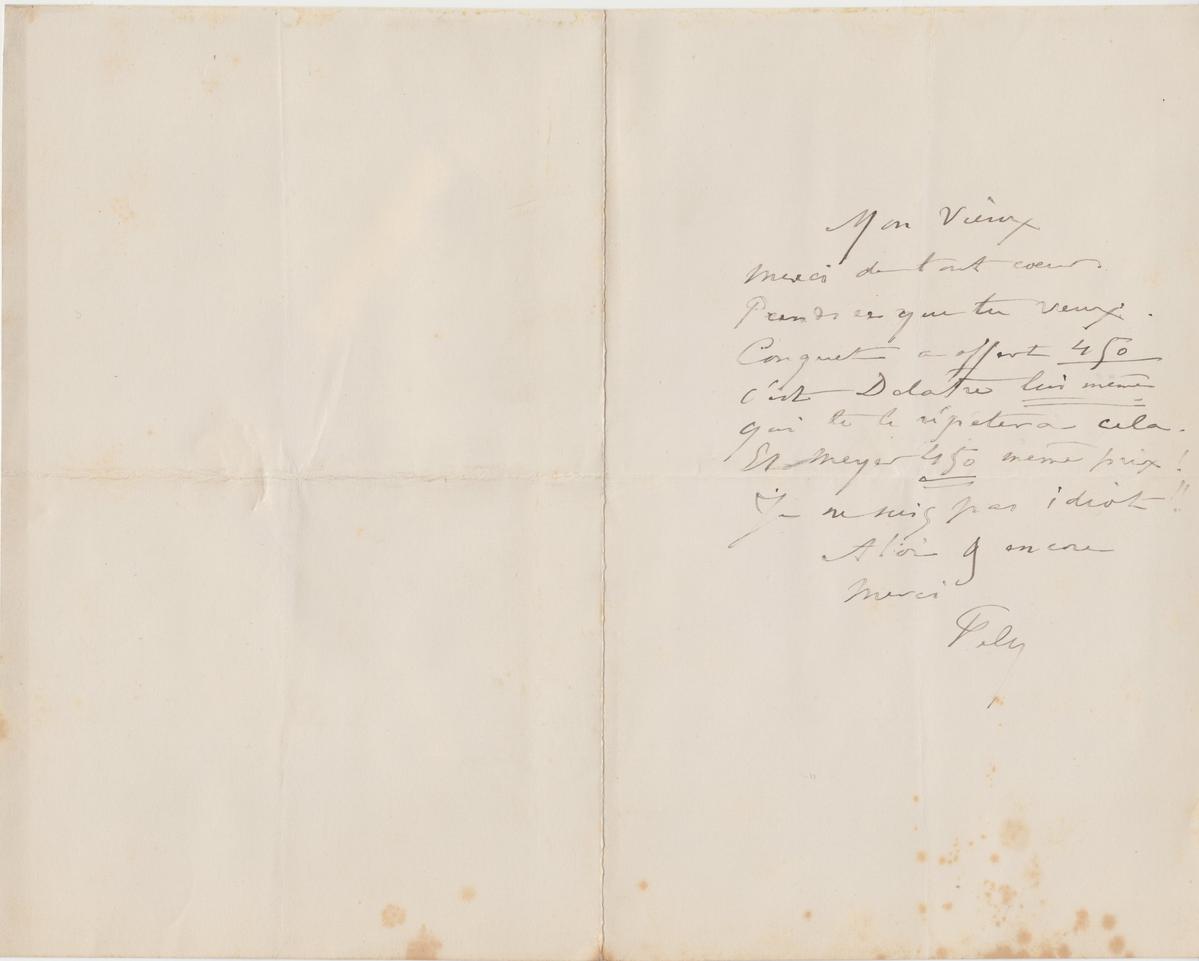 Mon Vieux
Merci de tout coeur.
Prends ce que tu veux.
Conquet a offert 450
c'est Delatre lui même
qui te le répetera cela.
Et Meyer 450 même prix!
Je ne suis pas idiot!!
encore
Merci
Fély